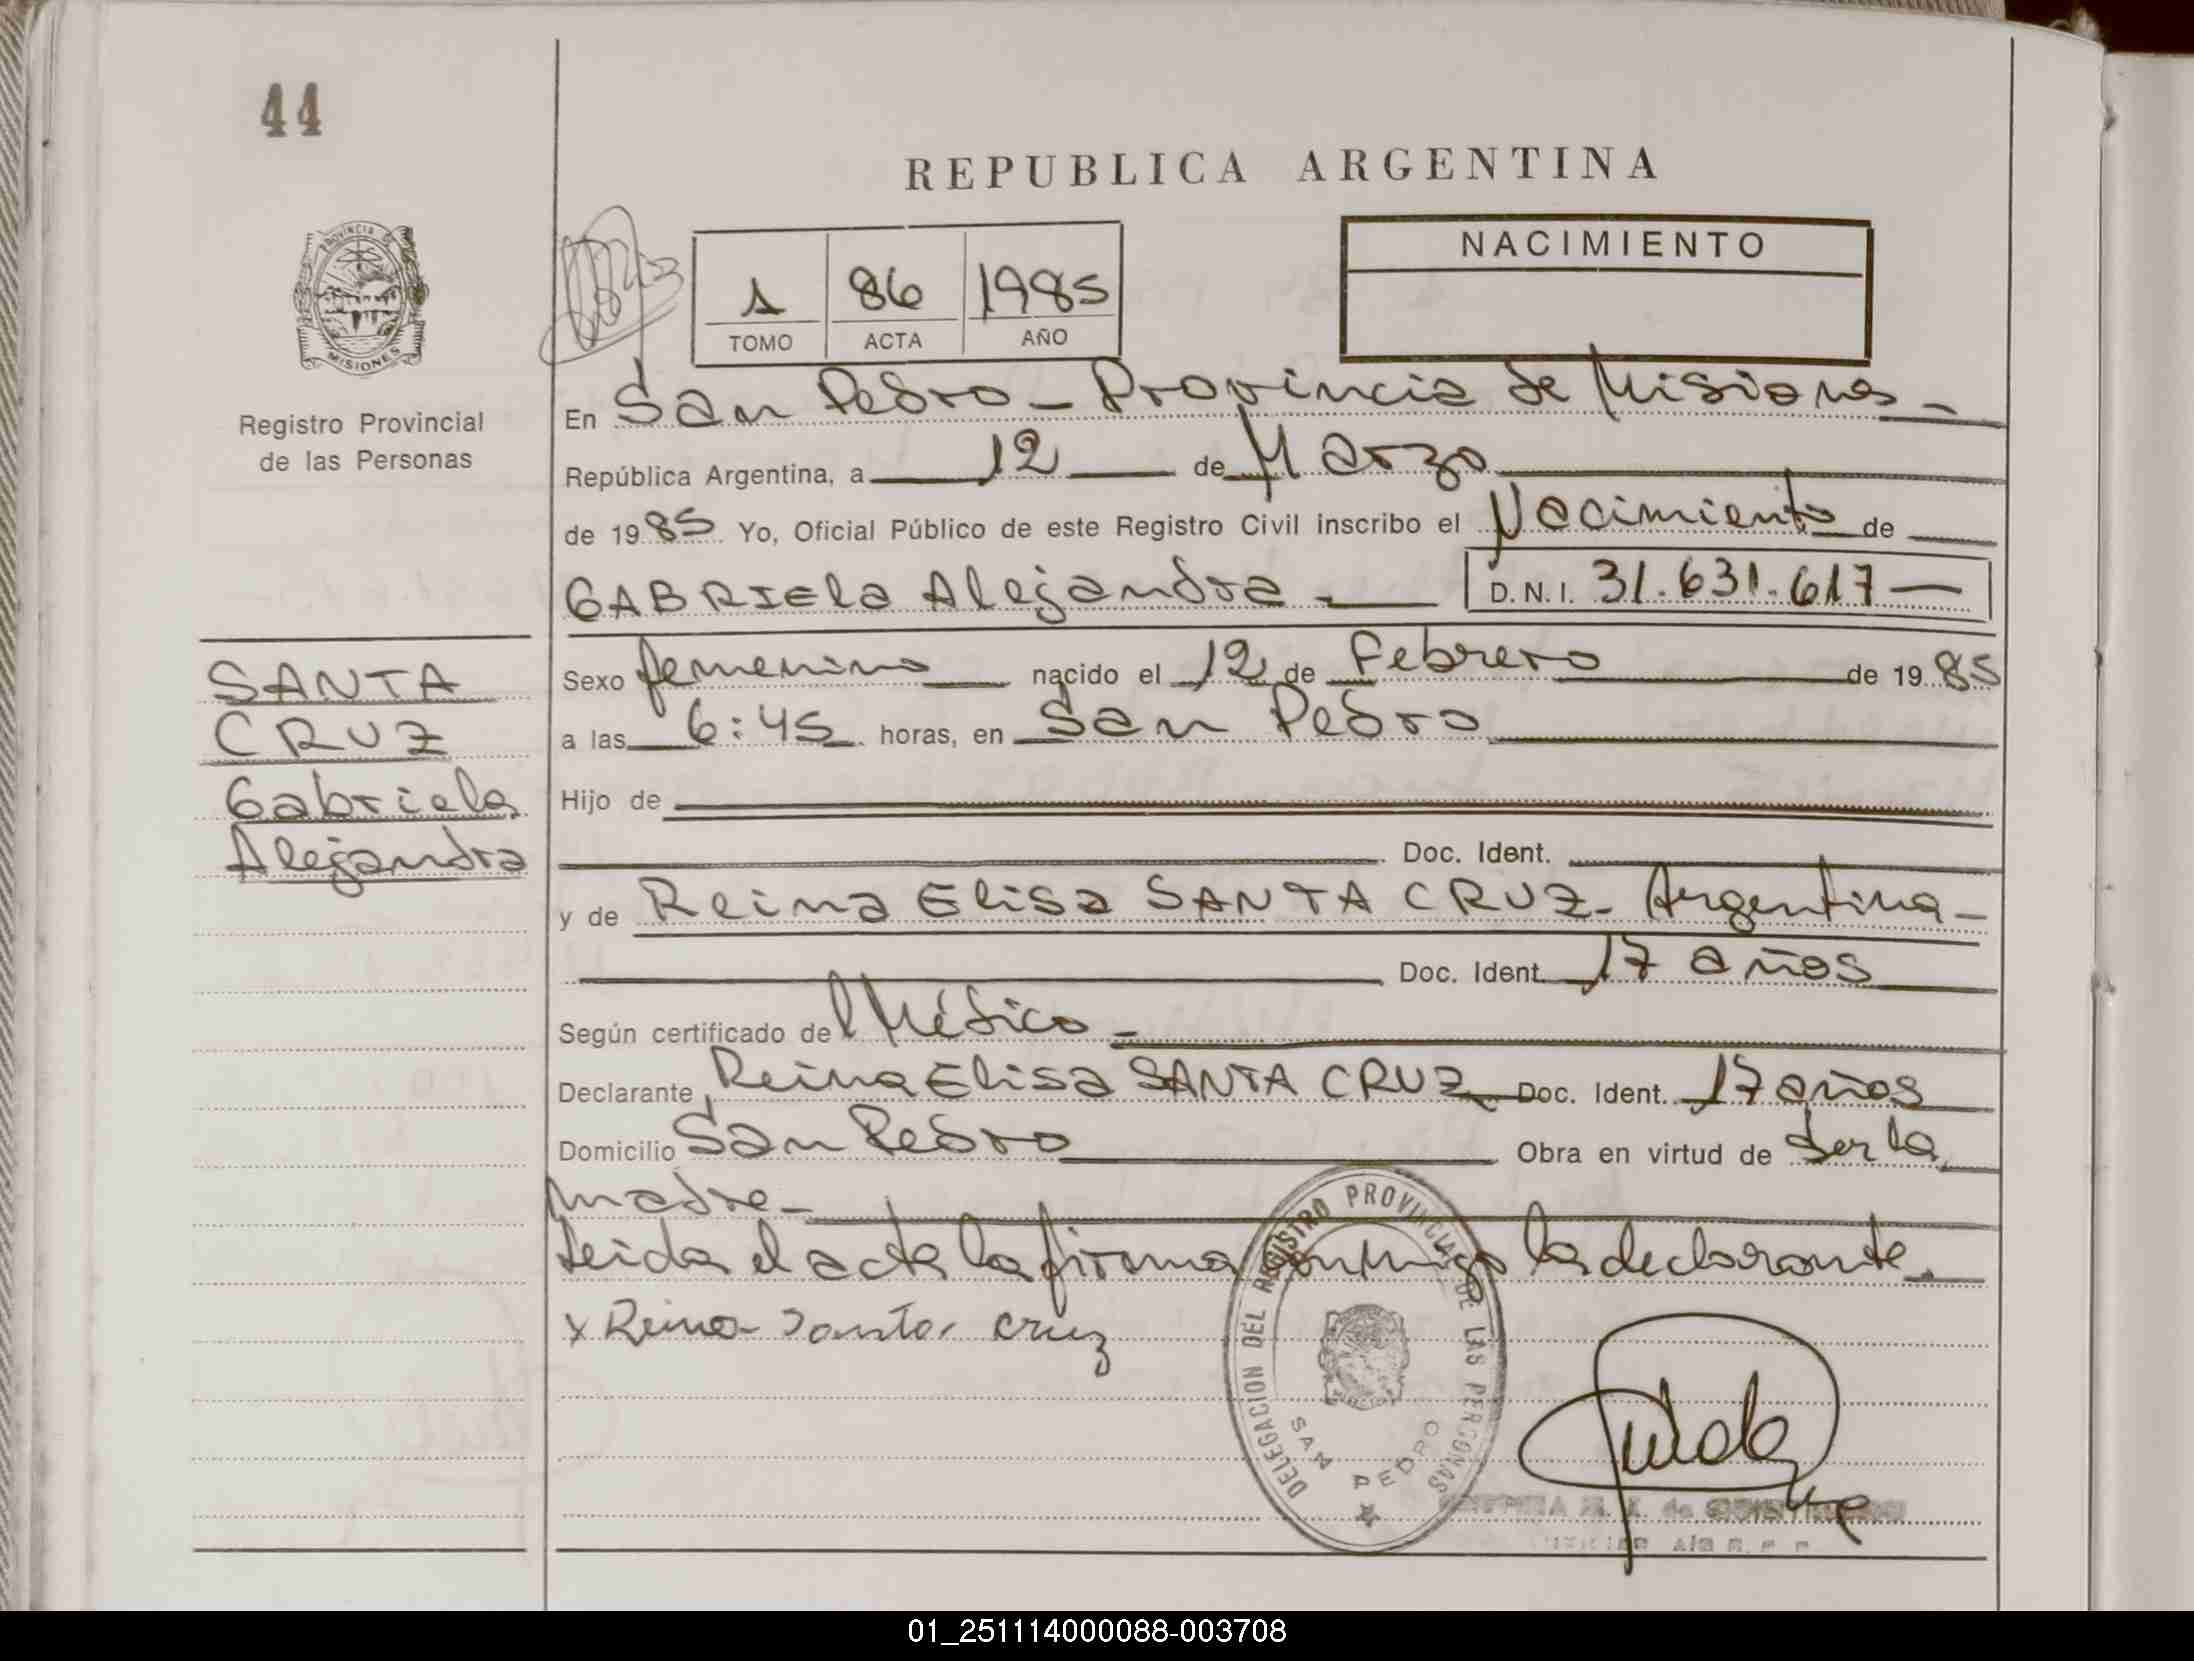 44
REPUBLICA ARGENTINA
PROVINCIA DE
MISIONES
Registro Provincial
de las Personas
NACIMIENTO
1 86 1985
TOMO ACTA AÑO
En San Pedro - Provincia de Misiones -
República Argentina, a 12 de Marzo
de 1985 Yo, Oficial Público de este Registro Civil inscribo el Nacimiento de
GABRIELA Alejandra - D.N.I. 31.631.617
SANTA
CRUZ
Gabriela
Alejandra
Sexo femenino nacido el 12 de Febrero de 1985
a las 6:45 horas, en San Pedro
Hijo de
Doc. Ident.
y de Reina Elisa SANTA CRUZ - Argentina -
Doc. Ident. 17 años
Según certificado del Médico -
Declarante Reina Elisa SANTA CRUZ Doc. Ident. 17 años
Domicilio San Pedro Obra en virtud de ser la
madre -
Leida el acta la firma conmigo la declarante.
x Reina Santa Cruz
DELEGACION DEL REGISTRO PROVINCIAL DE LAS PERSONAS
SAN PEDRO
01_251114000088-003708